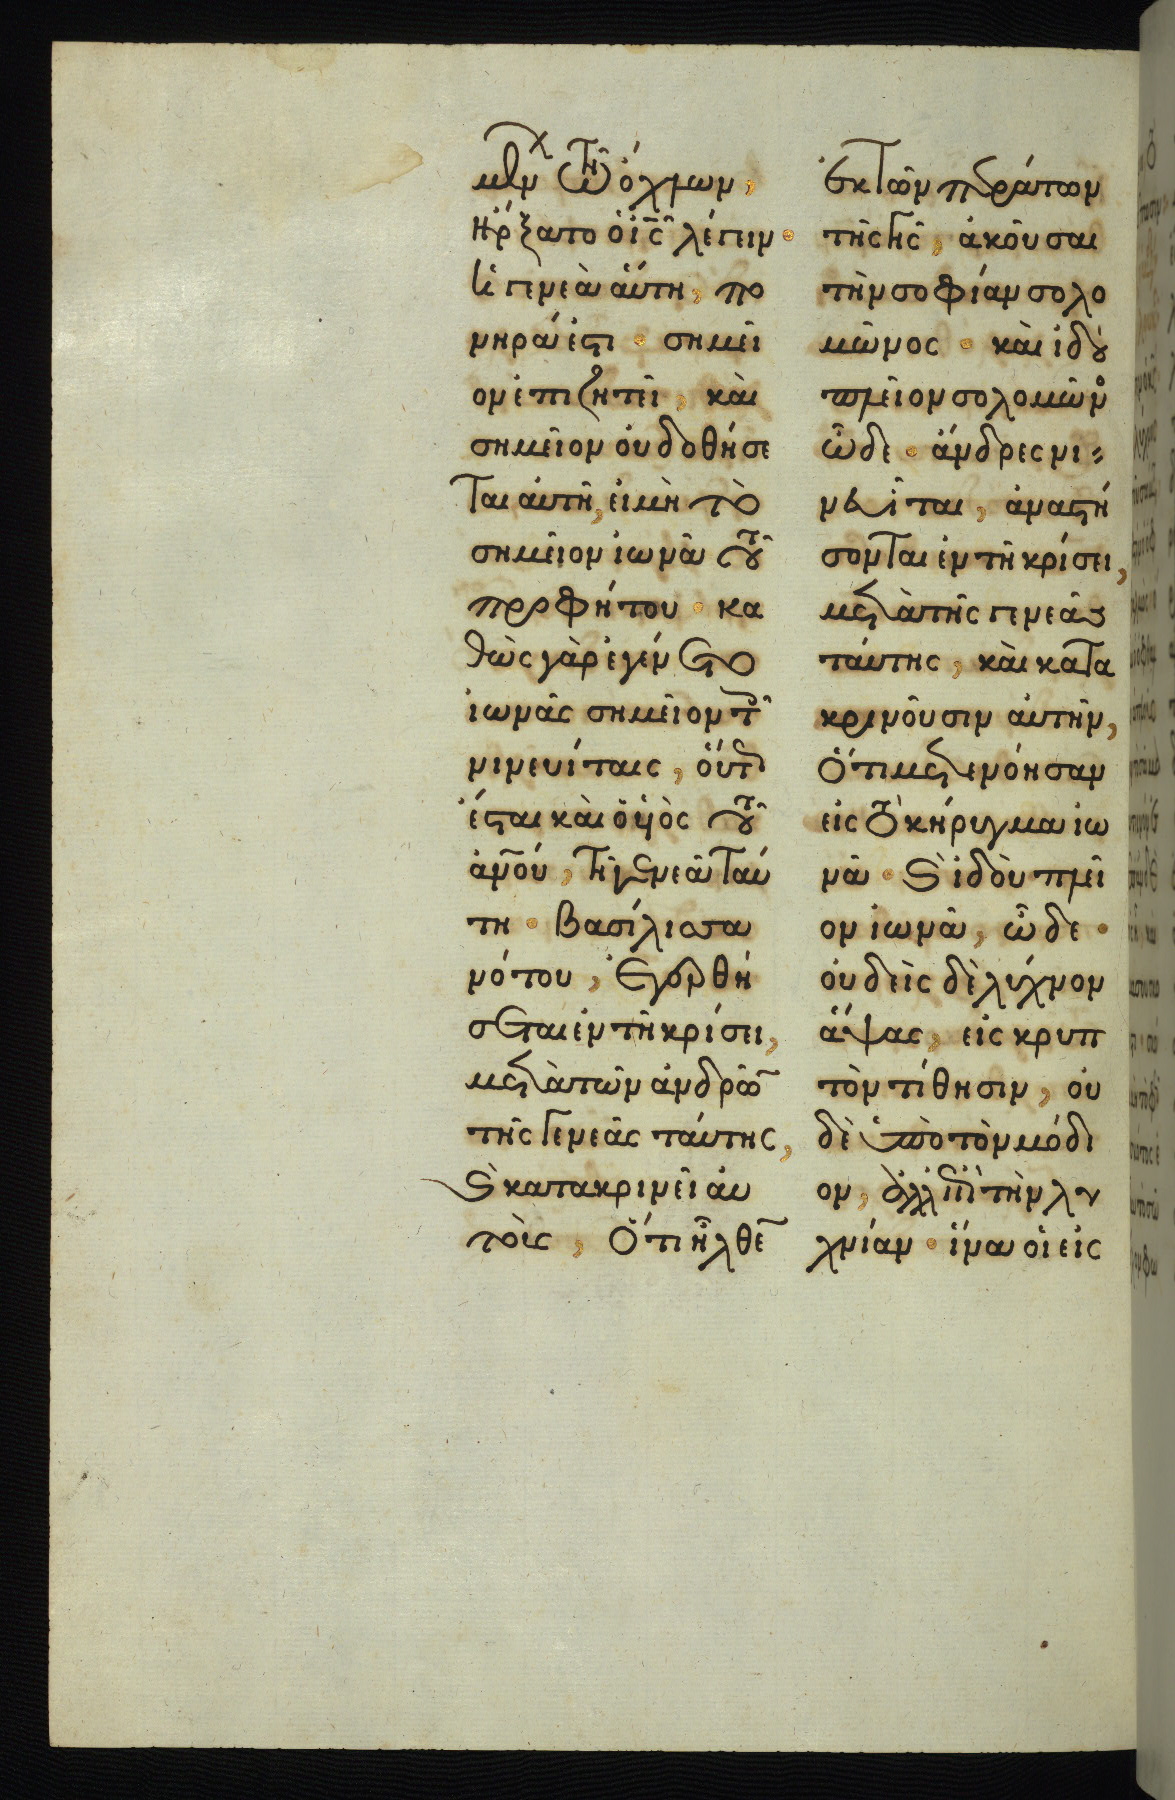 μεν τῶν ὄχλων,
ἤρξατο ὁ ἰ̅ς̅ λέγειν·
ἡ γενεὰ ἅυτη, πο
νηρά ἐστι· σημεῖ
ον ἐπιζητεῖ, καὶ
σημεῖον ὀυ δοθήσε
ται ἀυτῆ, εἰ μὴ τὸ
σημεῖον ἰωνᾶ τοῦ
προφήτου· κα
θὼς γὰρ ἐγένετο
ἰωνᾶς σημεῖον τοῖς
νινευίταις, ὅυτως
ἔσται καὶ ὁ ὑιὸς τοῦ
ἀν̅ου̅, τῆ γενεᾶ ταύ
τη· Βασίλισσα
νότου, ἐγερθή
σεται ἐν τῆ κρίσει,
μετὰ τῶν ἀνδρῶν
τῆς γενεᾶς ταύτης,
καὶ κατακρινεῖ ἀυ
τοὺς, ὅτι ἦλθεν
ἐκ τῶν περάτων
τῆς γῆς, ἀκοῦσαι
τὴν σοφίαν σολο
μῶνος· καὶ ἰδοὺ
πλεῖον σολομῶνος
ὧδε· ἄνδρες νι
νευῖται, ἀναστή
σονται ἐν τῆ κρίσει,
μετὰ τῆς γενεᾶς
ταύτης, καὶ κατα
κρινοῦσιν ἀυτὴν,
ὅτι μετενόησαν
εἰς τὸ κήρυγμα ἰω
νᾶ· καὶ ἰδὸυ πλεῖ
ον ἰωνᾶ, ὧδε·
ὀυδεὶς δὲ λύχνον
ἅψας, εἰς κρυπ
τὸν τίθησιν, ὀυ
δὲ ὑπὸ τὸν μόδι
ον, ἀλλ' ἐπὶ τὴν λυ
χνίαν· ἵνα ὁι εἰς